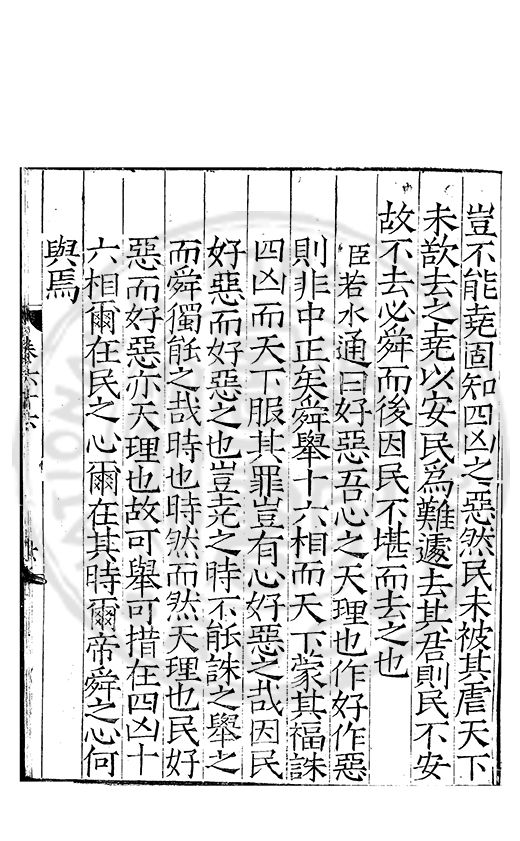 豈不能堯固知四凶之惡然民未被其虐天下
未欲去之堯以安民爲難遽去其君則民不安
故不去必舜而後因民不堪而去之也
臣若水通曰好惡吾心之天理也作好作惡
則非中正矣舜舉十六相而天下蒙其福誅
四凶而天下服其罪豈有心好惡之哉因民
好惡而好惡之也豈堯之時不能誅之舉之
而舜獨能之哉時也時然而然天理也民好
惡而好惡亦天理也故可舉可措在四凶十
六相爾在民之心爾在其時爾帝舜之心何
與焉